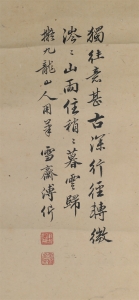 獨往意甚古深行徑轉微
涔涔山雨住稍稍暮雲歸
擬九龍山人用筆
雪齋溥忻